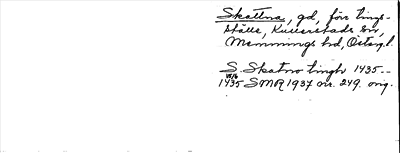 Skattna, gd, förr tings-
ställe, Kullerstads sn,
Memmings hd, Östergl.
S. Skatno tingh 1435 --
15/6
1435 SMR 1937 nr. 249. orig.